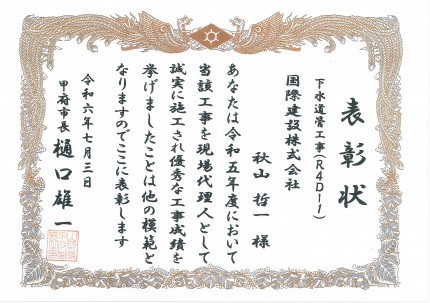 表彰状
下水道管工事(R4D-1)
国際建設株式会社
秋山 哲一 様
あなたは令和五年度において
当該工事を現場代理人として
誠実に施工され優秀な工事成績を
挙げましたことは他の模範と
なりますのでここに表彰します
令和六年七月三日
甲府市長 樋口雄一